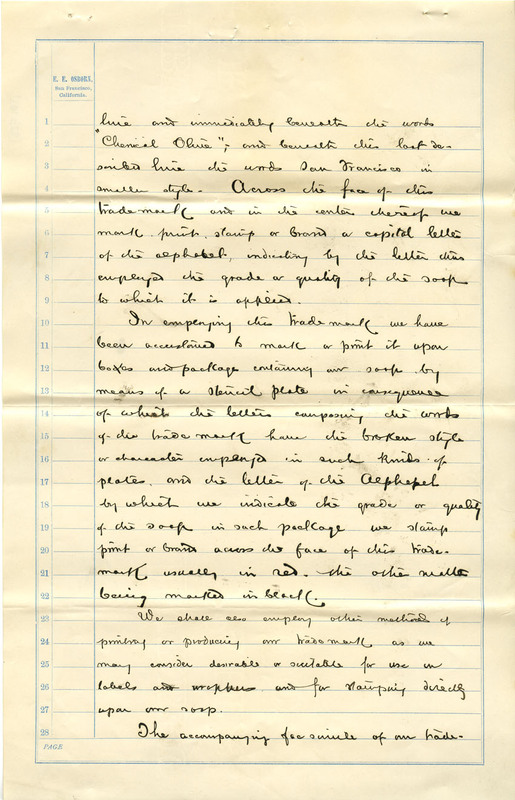 E. E. OSBORN,
San Francisco,
California.
1 line and immediately beneath the words
2 "Chemical Olive"; and beneath this last de-
3 scribed line the words San Francisco in
4 smaller style. Across the face of this
5 trade-mark and in the center thereof we
6 mark, print, stamp or brand a capital letter
7 of the alphabet, indicating by the letter thus
8 employed the grade or quality of the soap
9 to which it is applied.
10 In employing this trade mark we have
11 been accustomed to mark or print it upon
12 boxes and package containing our soap by
13 means of a stencil plate in consequence
14 of which the letters composing the words
15 of the trade mark have the broken style
16 or character employed in such kinds of
17 plates, and the letter of the Alphepet
18 by which we indicate the grade or quality
19 of the soap in such package we stamp
20 print or brand across the face of this trade-
21 mark usually in red, the other matter
22 being marked in black.
23 We shall also employ other methods of
24 printing or producing our trade mark as we
25 may consider desirable or suitable for use on
26 labels and wrappers and for stamping directly
27 upon our soap.
28 The accompanying fac simile of our trade-
PAGE